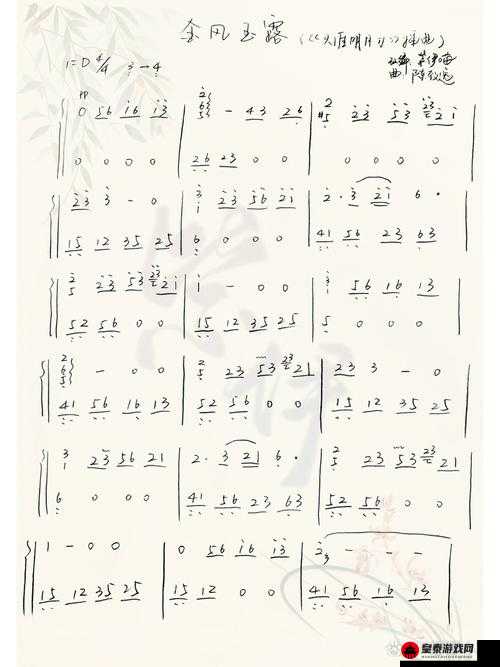 金风玉露 (《天涯明月刀》插曲)
1=D 4/4
曲: 陈致逸
pp
0 56 16 13 | 2 6 5 – 43 26 | 2 #5 23 53 23 21
0 0 0 0 | 26 23 0 0 | 0 0 0 0
23 3 – 0 | 3 1 23 56 21 | 2· 3 21 6·
15 12 35 25 | 6 0 0 0 | 41 56 23 63
2 5 23 53 23 21 | 1 – 0 0 | 3 1 56 16 13
52 56 0 0 | 15 12 35 25 | 5 0 0 0
2 6 5 – 0 0 | 2 5 23 53 23 21 | 23 3 – 0
41 56 16 13 | 52 56 0 0 | 15 12 35 25
3 1 23 56 21 | 2· 3 21 6· | 2 5 23 53 23 21
6 0 0 0 | 41 56 23 63 | 52 56 0 0
1 – 0 0 | 0 56 16 13 | 2 3 – – –
15 12 35 25 | 15 12 0 0 | 41 56 16 13
皇泰游戏网